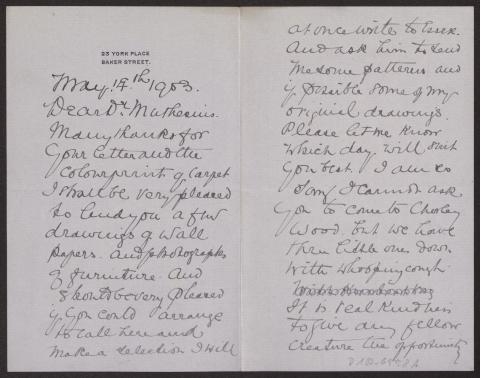 23 YORK PLACE
BAKER STREET.
May. 14th 1903.
Dear Dr. Muthesius.
Many thanks for
your letter and the
Colour print of Carpet
I shall be very pleased
to lend you a few
drawings of Wall
papers. And photographs
of furniture. And
should be very pleased
if you could arrange
to call here and
make a selection I will
at once write to Essex.
And ask him to send
me some patterns and
if possible some of my
original drawings.
Please let me know
which day will suit
you best. I am so
sorry I cannot ask
you to come to Chorley
Wood. but we have
three little ones down
with whooping cough
It is real kindness
to give any fellow
creature the opportunity